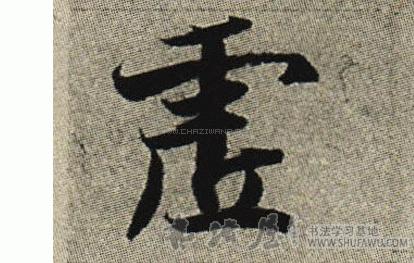 虚
WWW.CHAZIWANG.COM
书法屋
书法学习基地
WWW.SHUFAWU.COM